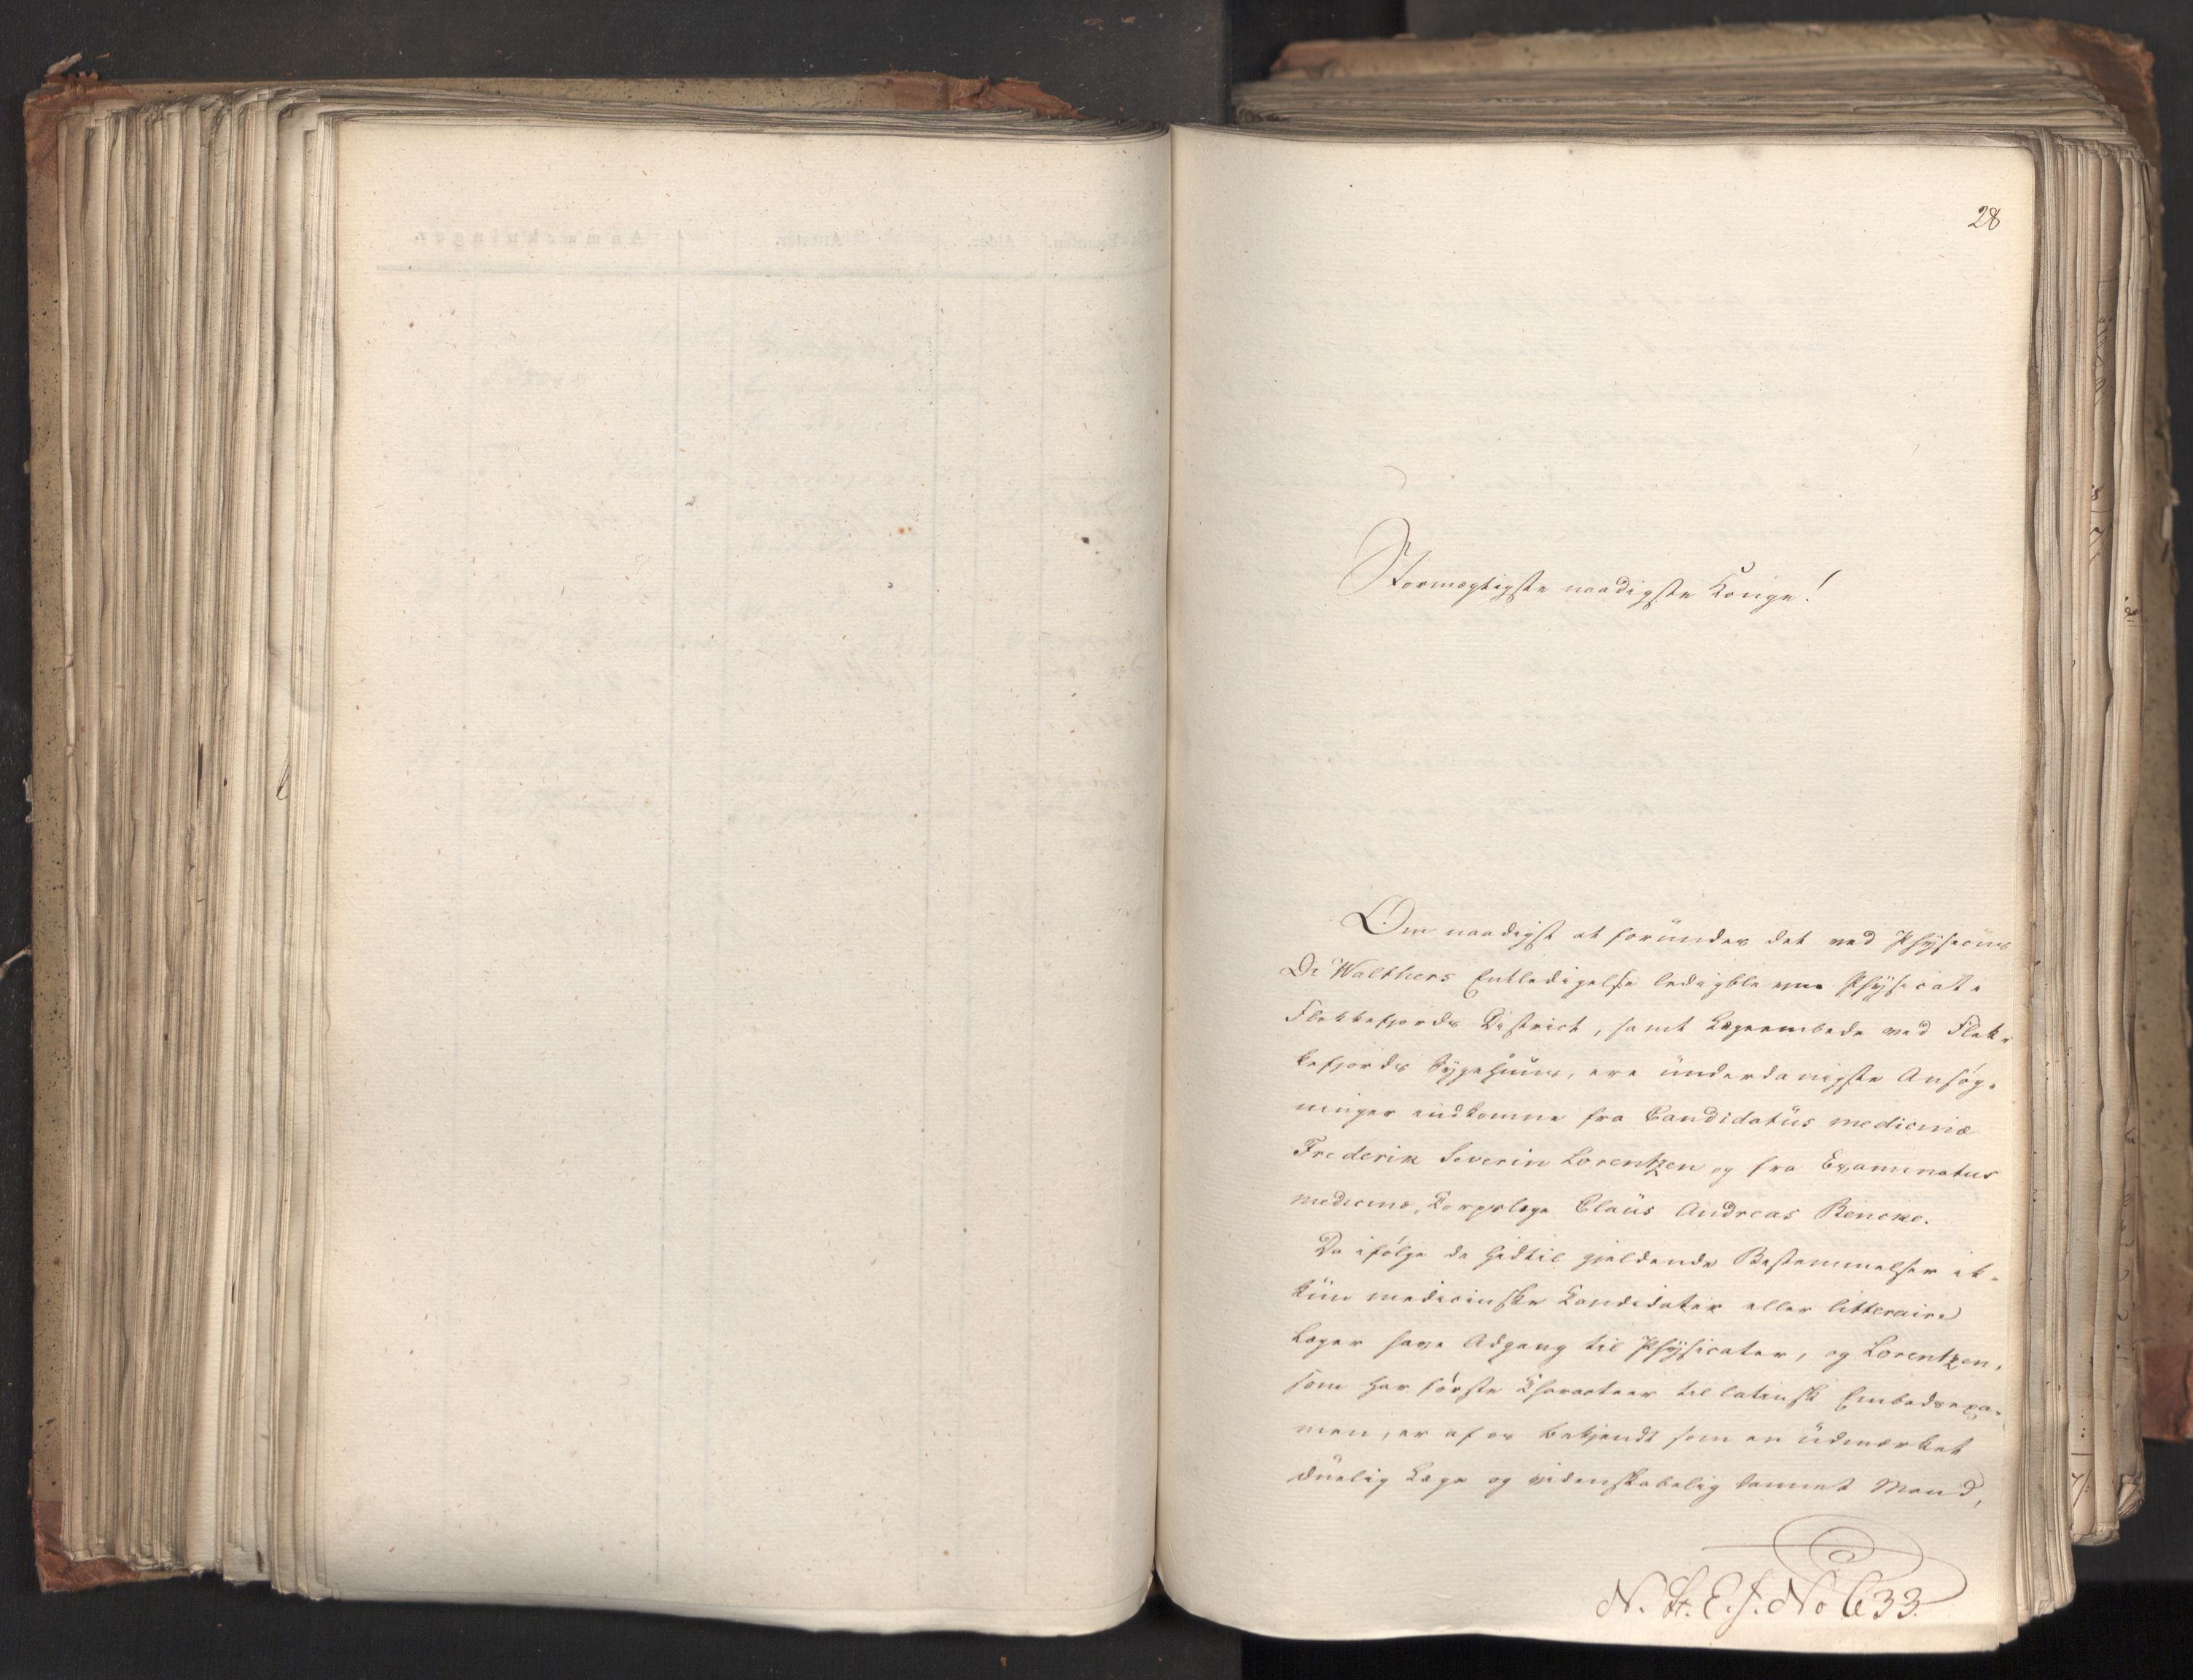 28
Stormægtigste naadigste Konge!
Om naadigst at forundes det ved Physicus
Dr Walthers Entledigelse ledigblevne Physicat i
Flekkefjords District, samt Lægeembede ved Flek-
kefjords Sygehuus, ere underdanigste Ansøg-
ninger indkomne fra Candidatus medicinæ
Frederik Severin Lorentzen og fra Examinatus
medicinæ, Korpslæge Claus Andreas Bencke.
Da ifølge de hidtil gjeldende Bestemmelser ik-
kun medicinske Kandidater eller litteraire
Læger have Adgang til Physicater, og Lorentzen,
som har første Charakteer til latinsk Embedsexa-
men, er af os bekjendt som en udmærket
duelig Læge og videnskabelig dannet Mand,
N. St. E. J. No 633.